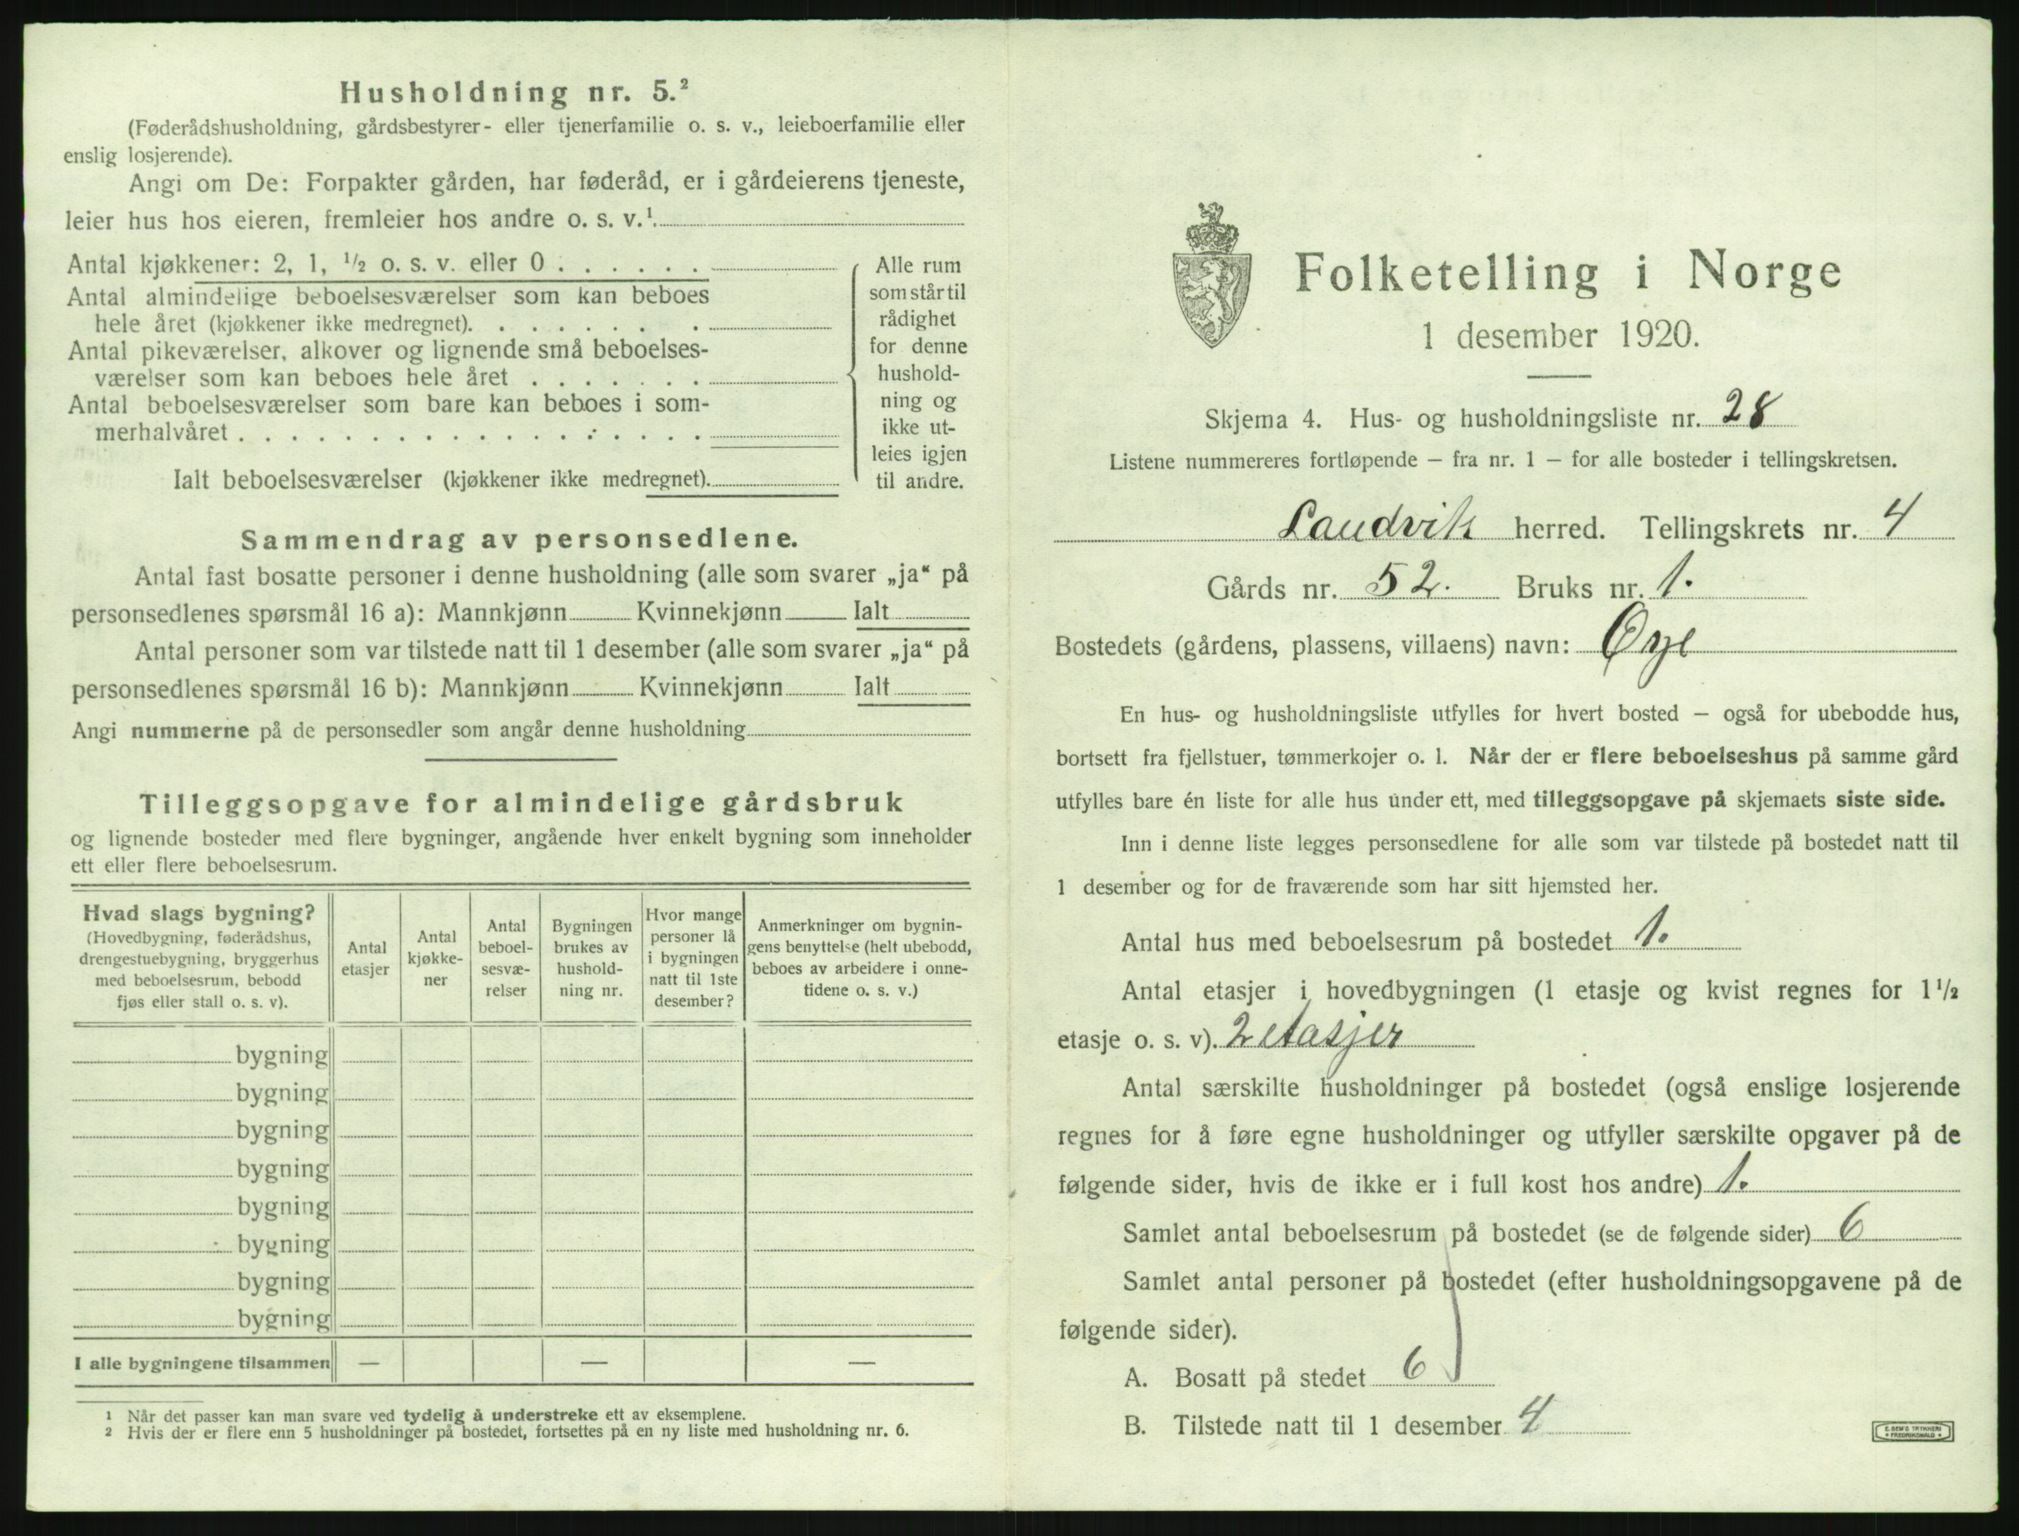 Husholdning nr. 5.²
(Føderådshusholdning, gårdsbestyrer- eller tjenerfamilie o. s. v., leieboerfamilie eller
enslig losjerende).
Angi om De: Forpakter gården, har føderåd, er i gårdeierens tjeneste,
leier hus hos eieren, fremleier hos andre o. s. v.¹
Antal kjøkkener: 2, 1, ½ o. s. v. eller 0 . . . . . .
Antal almindelige beboelsesværelser som kan beboes
hele året (kjøkkener ikke medregnet). . . . . . . .
Antal pikeværelser, alkover og lignende små beboelses-
værelser som kan beboes hele året . . . . . . .
Antal beboelsesværelser som bare kan beboes i som-
merhalvåret . . . . . . . . . . . . . . . . . .
Ialt beboelsesværelser (kjøkkener ikke medregnet).
Alle rum
som står til
rådighet
for denne
hushold-
ning og
ikke ut-
leies igjen
til andre.
Sammendrag av personsedlene.
Antal fast bosatte personer i denne husholdning (alle som svarer „ja“ på
personsedlenes spørsmål 16 a): Mannkjønn Kvinnekjønn Ialt
Antal personer som var tilstede natt til 1 desember (alle som svarer „ja“ på
personsedlenes spørsmål 16 b): Mannkjønn Kvinnekjønn Ialt
Angi nummerne på de personsedler som angår denne husholdning
Tilleggsopgave for almindelige gårdsbruk
og lignende bosteder med flere bygninger, angående hver enkelt bygning som inneholder
ett eller flere beboelsesrum.
Hvad slags bygning?
(Hovedbygning, føderådshus,
drengestuebygning, bryggerhus
med beboelsesrum, bebodd
fjøs eller stall o. s. v).
Antal
etasjer
Antal
kjøkke-
ner
Antal
beboel-
sesvæ-
relser
Bygningen
brukes av
hushold-
ning nr.
Hvor mange
personer lå
i bygningen
natt til 1ste
desember?
Anmerkninger om bygnin-
gens benyttelse (helt ubebodd,
beboes av arbeidere i onne-
tidene o. s. v.)
bygning
bygning
bygning
bygning
bygning
bygning
bygning
bygning
I alle bygningene tilsammen — — —
¹ Når det passer kan man svare ved tydelig å understreke ett av eksemplene.
² Hvis der er flere enn 5 husholdninger på bostedet, fortsettes på en ny liste med husholdning nr. 6.
Folketelling i Norge
1 desember 1920.
Skjema 4. Hus- og husholdningsliste nr. 28
Listene nummereres fortløpende – fra nr. 1 – for alle bosteder i tellingskretsen.
Landvik herred. Tellingskrets nr. 4
Gårds nr. 52. Bruks nr. 1.
Bostedets (gårdens, plassens, villaens) navn: Øye
En hus- og husholdningsliste utfylles for hvert bosted – også for ubebodde hus,
bortsett fra fjellstuer, tømmerkojer o. l. Når der er flere beboelseshus på samme gård
utfylles bare én liste for alle hus under ett, med tilleggsopgave på skjemaets siste side.
Inn i denne liste legges personsedlene for alle som var tilstede på bostedet natt til
1 desember og for de fraværende som har sitt hjemsted her.
Antal hus med beboelsesrum på bostedet 1.
Antal etasjer i hovedbygningen (1 etasje og kvist regnes for 1½
etasje o. s. v). 2 etasjer
Antal særskilte husholdninger på bostedet (også enslige losjerende
regnes for å føre egne husholdninger og utfyller særskilte opgaver på de
følgende sider, hvis de ikke er i full kost hos andre) 1.
Samlet antal beboelsesrum på bostedet (se de følgende sider) 6
Samlet antal personer på bostedet (efter husholdningsopgavene på de
følgende sider).
A. Bosatt på stedet 6
B. Tilstede natt til 1 desember 4